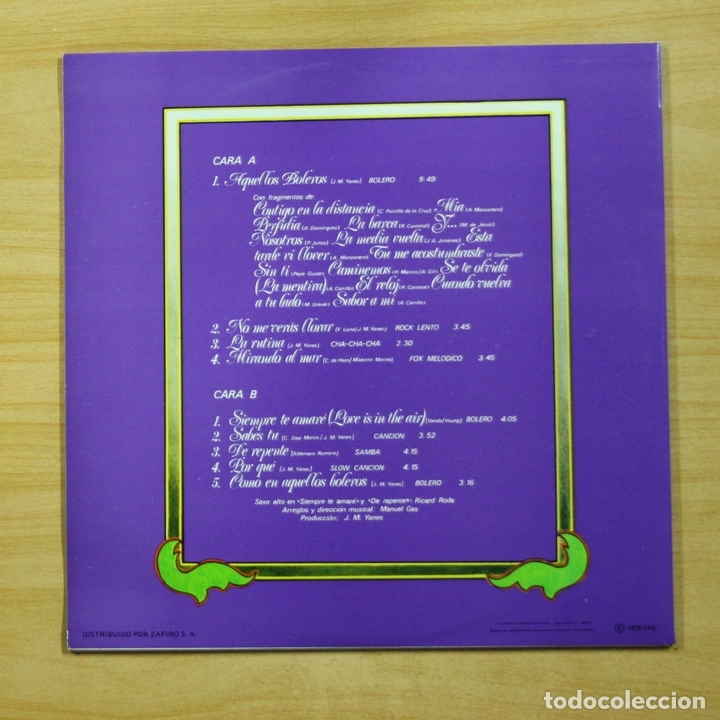 CARA A
1. Aquellos Boleros (J. M. Yanes) BOLERO 9:49
Con fragmentos de:
Contigo en la distancia (C. Portillo de la Cruz). Mia (A. Manzanero).
Perfidia (A. Dominguez). La barca (R. Cantoral). Y... (M. de Jesús).
Nosotros (P. Junco). La media vuelta (J. A. Jimenez). Esta
tarde vi llover (A. Manzanero). Tu me acostumbraste (F. Dominguez).
Sin ti (Pepe Guizar). Caminemos (H. Martins/A. Gil). Se te olvida
(La mentira) (A. Carrillo). El reloj (R. Cantoral). Cuando vuelva
a tu lado (M. Grever). Sabor a mi (A. Carrillo)
2. No me verás llorar (F. Luna/J. M. Yanes) ROCK LENTO 3.45
3. La rutina (J. M. Yanes) CHA-CHA-CHA 2:30
4. Mirando al mar (C. de Haro/Maestro Marino) FOX MELODICO 3:45
CARA B
1. Siempre te amaré (Love is in the air) (Vanda/Young) BOLERO 4.05
2. Sabes tu (C. Diez Martín/J. M. Yanes) CANCION 3.52
3. De repente (Aldemaro Romero) SAMBA 4.15
4. Por qué (J. M. Yanes) SLOW CANCION 4.15
5. Como en aquellos boleros (J. M. Yanes) BOLERO 3:16
Saxo alto en «Siempre te amaré» y «De repente»: Ricard Roda
Arreglos y dirección musical: Manuel Gas
Producción: J. M. Yanes
DISTRIBUIDO POR ZAFIRO S. A.
todocoleccion